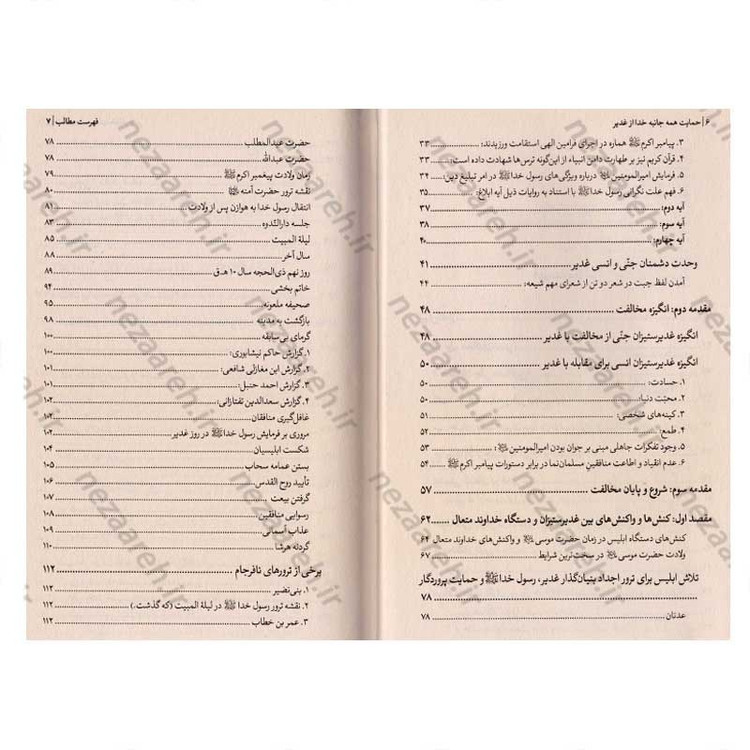 ۶ | حمایت همه جانبه خدا از غدیر
۳. پیامبر اکرمﷺ همواره در اجرای فرامین الهی استقامت ورزیدند: ۳۳
۴. قرآن کریم نیز بر طهارت دامن انبیاء از این‌گونه ترس‌ها شهادت داده است: ۳۳
۵. فرمایش امیرالمومنین درباره ویژگی‌های رسول خداﷺ در امر تبلیغ دین: ۳۴
۶. فهم علت نگرانی رسول خداﷺ با استناد به روایات ذیل آیه ابلاغ: ۳۵
آیه دوم: ۳۷
آیه سوم: ۳۸
آیه چهارم: ۴۰
وحدت دشمنان جنّی و انسی غدیر ۴۱
آمدن لفظ جبت در شعر دو تن از شعرای مهم شیعه: ۴۴
مقدمه دوم: انگیزه مخالفت ۴۸
انگیزه غدیرستیزان جنّی از مخالفت با غدیر ۴۸
انگیزه غدیرستیزان انسی برای مقابله با غدیر ۵۰
۱. حسادت: ۵۰
۲. محبّت دنیا: ۵۰
۳. کینه‌های شخصی: ۵۱
۴. طمع: ۵۲
۵. وجود تفکرات جاهلی مبنی بر جوان بودن امیرالمومنین ۵۳
۶. عدم انقیاد و اطاعت منافقینِ مسلمان‌نما در برابر دستورات پیامبر اکرمﷺ ۵۴
مقدمه سوم: شروع و پایان مخالفت ۵۷
مقصد اول: کنش‌ها و واکنش‌های بین غدیرستیزان و دستگاه خداوند متعال ۶۲
کنش‌های دستگاه ابلیس در زمان حضرت موسی و واکنش‌های خداوند متعال ۶۴
ولادت حضرت موسی در سخت‌ترین شرایط ۶۷
تلاش ابلیس برای ترور اجداد بنیان‌گذار غدیر، رسول خداﷺ و حمایت پروردگار
۷۸
عدنان ۷۸
فهرست مطالب | ۷
حضرت عبدالمطلب ۷۸
حضرت عبدالله ۷۸
زمان ولادت پیغمبر اکرمﷺ ۷۹
نقشه ترور حضرت آمنه ۸۰
انتقال رسول خدا به هوازن پس از ولادت ۸۱
جلسه دارالنّدوه ۸۳
لیلة المبیت ۸۵
سال آخر ۸۸
روز نهم ذی‌الحجه سال ۱۰ ه‍.ق ۸۹
خاتم بخشی ۹۴
صحیفه ملعونه ۹۵
بازگشت به مدینه ۹۸
گرمای بی سابقه ۱۰۰
۱. گزارش حاکم نیشابوری: ۱۰۰
۲. گزارش ابن مغازلی شافعی: ۱۰۱
۳. گزارش احمد حنبل: ۱۰۱
۴. گزارش سعدالدین تفتازانی: ۱۰۲
غافل‌گیری منافقان ۱۰۲
مروری بر فرمایش رسول خداﷺ در روز غدیر ۱۰۲
شکست ابلیسیان ۱۰۴
بستن عمامه سحاب ۱۰۵
تأیید روح القدس ۱۰۶
گرفتن بیعت ۱۰۷
رسوایی منافقین ۱۰۸
عذاب آسمانی ۱۰۹
گردنه هرشا ۱۱۰
برخی از ترورهای نافرجام ۱۱۲
۱. بنی‌نضیر ۱۱۲
۲. نقشه ترور رسول خداﷺ در لیلة المبیت (که گذشت.) ۱۱۲
۳. عمر بن خطاب ۱۱۲
nezaareh.ir